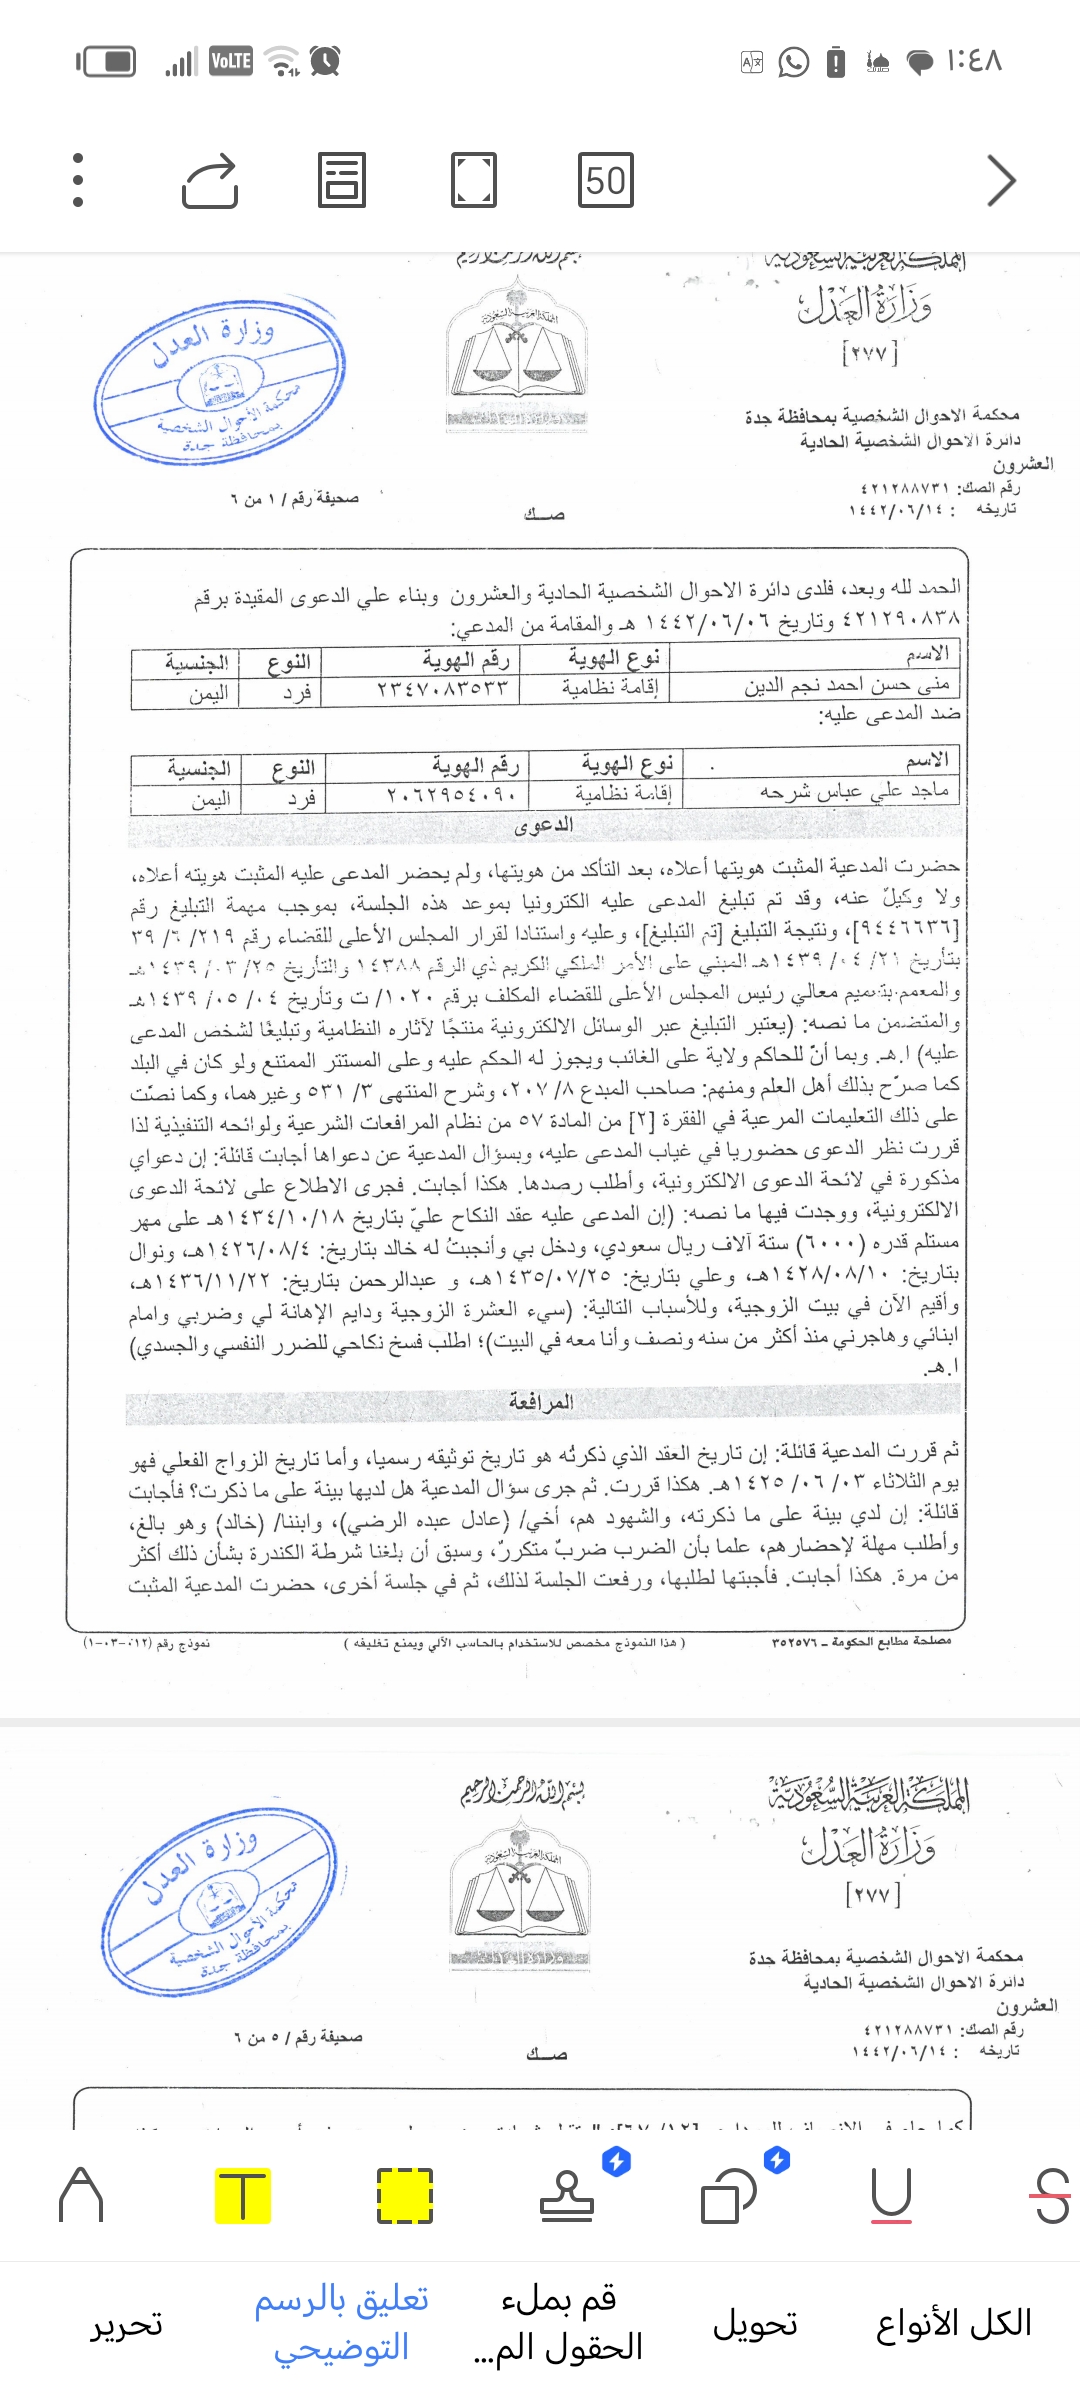 VoLTE
١:٤٨
50
بسم الله الرحمن الرحيم
المملكة العربية السعودية
وزارة العدل
[٢٧٧]
وزارة العدل
محكمة الأحوال الشخصية
بمحافظة جدة
محكمة الاحوال الشخصية بمحافظة جدة
دائرة الاحوال الشخصية الحادية
العشرون
رقم الصك: ٤٢١٢٨٨٧٣١
تاريخه : ١٤٤٢/٠٦/١٤
صحيفة رقم / ١ من ٦
صـــك
الحمد لله وبعد، فلدى دائرة الاحوال الشخصية الحادية والعشرون وبناء علي الدعوى المقيدة برقم
٤٢١٢٩٠٨٣٨ وتاريخ ١٤٤٢/٠٦/٠٦ هـ والمقامة من المدعي:
الاسم نوع الهوية رقم الهوية النوع الجنسية
منى حسن احمد نجم الدين إقامة نظامية ٢٣٤٧٠٨٣٥٣٣ فرد اليمن
ضد المدعى عليه:
الاسم نوع الهوية رقم الهوية النوع الجنسية
ماجد علي عباس شرحه إقامة نظامية ٢٠٦٢٩٥٤٠٩٠ فرد اليمن
الدعوى
حضرت المدعية المثبت هويتها أعلاه، بعد التأكد من هويتها، ولم يحضر المدعى عليه المثبت هويته أعلاه،
ولا وكيلٌ عنه، وقد تم تبليغ المدعى عليه الكترونيا بموعد هذه الجلسة، بموجب مهمة التبليغ رقم
[٩٤٤٦٦٣٦]، ونتيجة التبليغ [تم التبليغ]، وعليه واستنادا لقرار المجلس الأعلى للقضاء رقم ٢١٩/ ٦/ ٣٩
بتأريخ ٢١/ ٠٤/ ١٤٣٩هـ المبني على الأمر الملكي الكريم ذي الرقم ١٤٣٨٨ والتأريخ ٢٥/ ٠٣/ ١٤٣٩هـ
والمعمم بتعميم معالي رئيس المجلس الأعلى للقضاء المكلف برقم ١٠٢٠/ ت وتأريخ ٠٤/ ٠٥/ ١٤٣٩هـ
والمتضمن ما نصه: (يعتبر التبليغ عبر الوسائل الالكترونية منتجًا لآثاره النظامية وتبليغًا لشخص المدعى
عليه) ا.هـ. وبما أنّ للحاكم ولاية على الغائب ويجوز له الحكم عليه وعلى المستتر الممتنع ولو كان في البلد
كما صرّح بذلك أهل العلم ومنهم: صاحب المبدع ٨/ ٢٠٧، وشرح المنتهى ٣/ ٥٣١ وغيرهما، وكما نصّت
على ذلك التعليمات المرعية في الفقرة [٢] من المادة ٥٧ من نظام المرافعات الشرعية ولوائحه التنفيذية لذا
قررت نظر الدعوى حضوريا في غياب المدعى عليه، وبسؤال المدعية عن دعواها أجابت قائلة: إن دعواي
مذكورة في لائحة الدعوى الالكترونية، وأطلب رصدها. هكذا أجابت. فجرى الاطلاع على لائحة الدعوى
الالكترونية، ووجدت فيها ما نصه: (إن المدعى عليه عقد النكاح عليّ بتاريخ ١٤٣٤/١٠/١٨هـ على مهر
مستلم قدره (٦٠٠٠) ستة آلاف ريال سعودي، ودخل بي وأنجبتُ له خالد بتاريخ: ١٤٢٦/٠٨/٤هـ، ونوال
بتاريخ: ١٤٢٨/٠٨/١٠هـ، وعلي بتاريخ: ١٤٣٥/٠٧/٢٥هـ، و عبدالرحمن بتاريخ: ١٤٣٦/١١/٢٢هـ،
وأقيم الآن في بيت الزوجية، وللأسباب التالية: (سيء العشرة الزوجية ودايم الإهانة لي وضربي وامام
ابنائي وهاجرني منذ أكثر من سنه ونصف وأنا معه في البيت)؛ اطلب فسخ نكاحي للضرر النفسي والجسدي)
ا.هـ.
المرافعة
ثم قررت المدعية قائلة: إن تاريخ العقد الذي ذكرته هو تاريخ توثيقه رسميا، وأما تاريخ الزواج الفعلي فهو
يوم الثلاثاء ٠٣/ ٠٦/ ١٤٢٥هـ. هكذا قررت. ثم جرى سؤال المدعية هل لديها بينة على ما ذكرت؟ فأجابت
قائلة: إن لدي بينة على ما ذكرته، والشهود هم، أخي/ (عادل عبده الرضي)، وابننا/ (خالد) وهو بالغ،
وأطلب مهلة لإحضارهم، علما بأن الضرب ضربٌ متكررٌ، وسبق أن بلغنا شرطة الكندرة بشأن ذلك أكثر
من مرة. هكذا أجابت. فأجبتها لطلبها، ورفعت الجلسة لذلك، ثم في جلسة أخرى، حضرت المدعية المثبت
مصلحة مطابع الحكومة – ٣٥٢٥٧٦
( هذا النموذج مخصص للاستخدام بالحاسب الآلي ويمنع تغليفه )
نموذج رقم (١٢-٠٣-٠١)
بسم الله الرحمن الرحيم
المملكة العربية السعودية
وزارة العدل
[٢٧٧]
وزارة العدل
محكمة الأحوال الشخصية
بمحافظة جدة
محكمة الاحوال الشخصية بمحافظة جدة
دائرة الاحوال الشخصية الحادية
العشرون
رقم الصك: ٤٢١٢٨٨٧٣١
تاريخه : ١٤٤٢/٠٦/١٤
صحيفة رقم / ٥ من ٦
صـــك
الكل الأنواع
تحويل
قم بملء
الحقول الم...
تعليق بالرسم
التوضيحي
تحرير